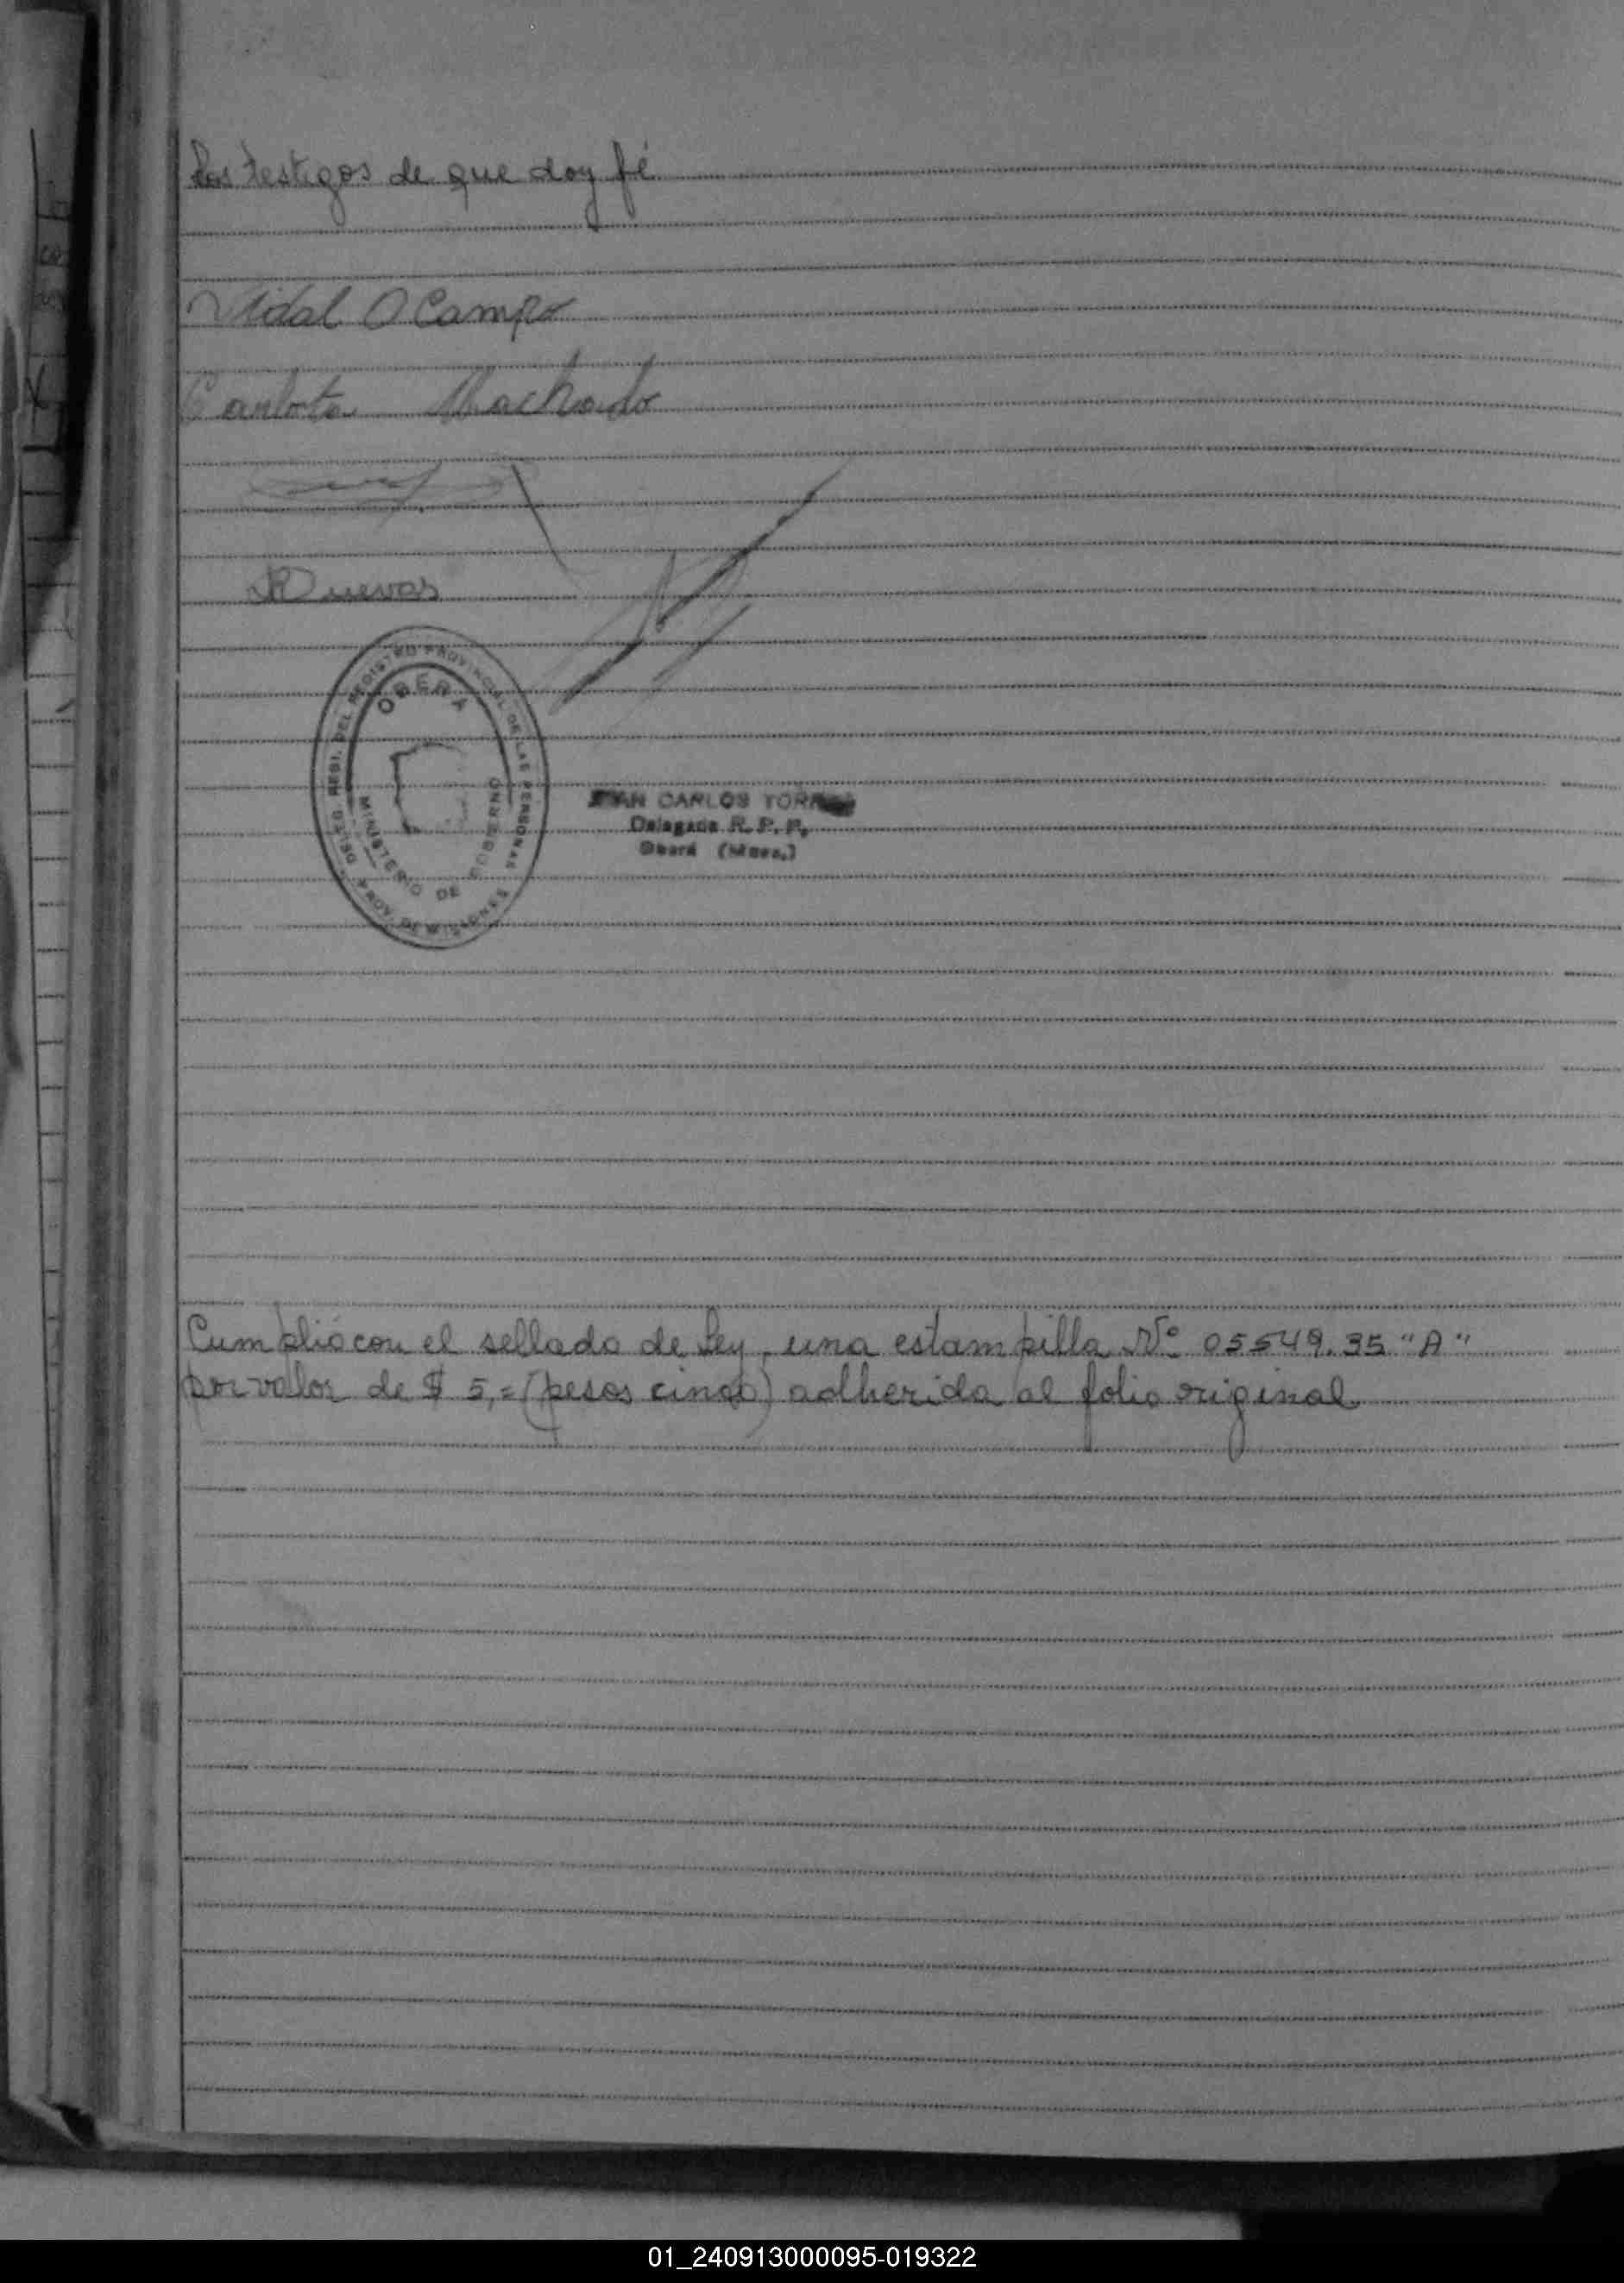 los testigos de que doy fé
Vidal Ocampo
Carlota Machado
DELEG. RESI. DEL REGISTRO PROVINCIAL DE LAS PERSONAS
OBERA
MINISTERIO DE GOBIERNO
PROV. DE MISIONES
JUAN CARLOS TORRES
Delegado R. P. P.
Oberá (Mnes.)
Cumplió con el sellado de Ley, una estampilla Nº 05549.35 "A"
por valor de $ 5,= (pesos cinco) adherida al folio original
01_240913000095-019322